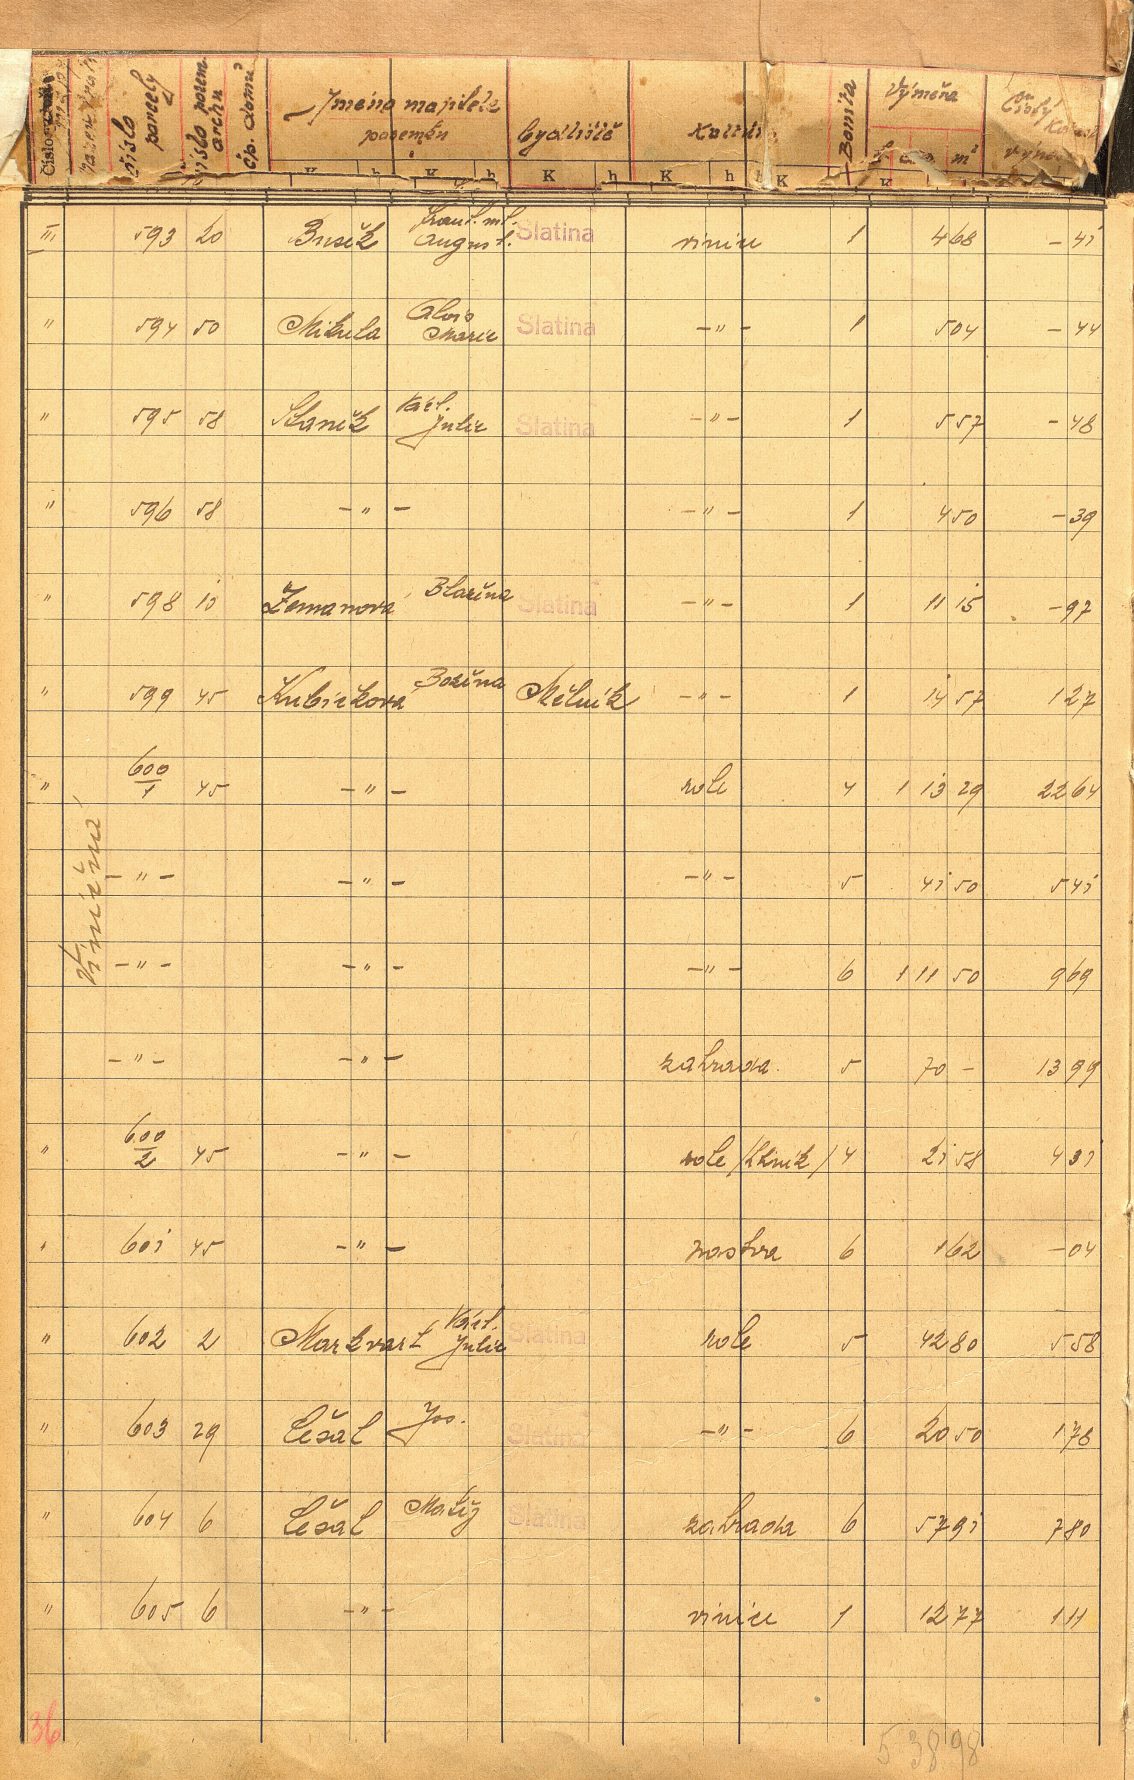 číslo parcely
číslo pozem. archu
čp. domu
Jméno majitele pozemku
bydliště
Kultura
Bonita
Výměra
m²
Čistý
K h K h K h K h K
III 593 20 Busěk Frant. ml. August. Slatina vinice 1 4 68 – 41
" 594 50 Mikula Alois Marie Slatina – " – 1 5 04 – 44
" 595 58 Staněk Václ. Julie Slatina – " – 1 5 57 – 48
" 596 58 – " – – " – 1 4 50 – 39
" 598 10 Zemanova Blažena Slatina – " – 1 11 15 – 97
" 599 45 Kubíčkova Božena Mělník – " – 1 14 57 1 27
" 600/1 45 – " – role 4 1 13 29 22 64
Viničná
– " – – " – – " – 5 41 50 5 41
– " – – " – – " – 6 1 11 50 9 69
– " – – " – zahrada 5 70 – 13 99
" 600/2 45 – " – role 4 21 58 4 31
" 601 45 – " – pastva 6 1 62 – 04
" 602 2 Markvart Václ. Julie Slatina role 5 42 80 5 58
" 603 29 Cesal Jos. Slatina – " – 6 20 50 1 78
" 604 6 Cesal Matěj Slatina zahrada 6 57 91 7 80
" 605 6 – " – vinice 1 12 77 1 11
36
5 38 98